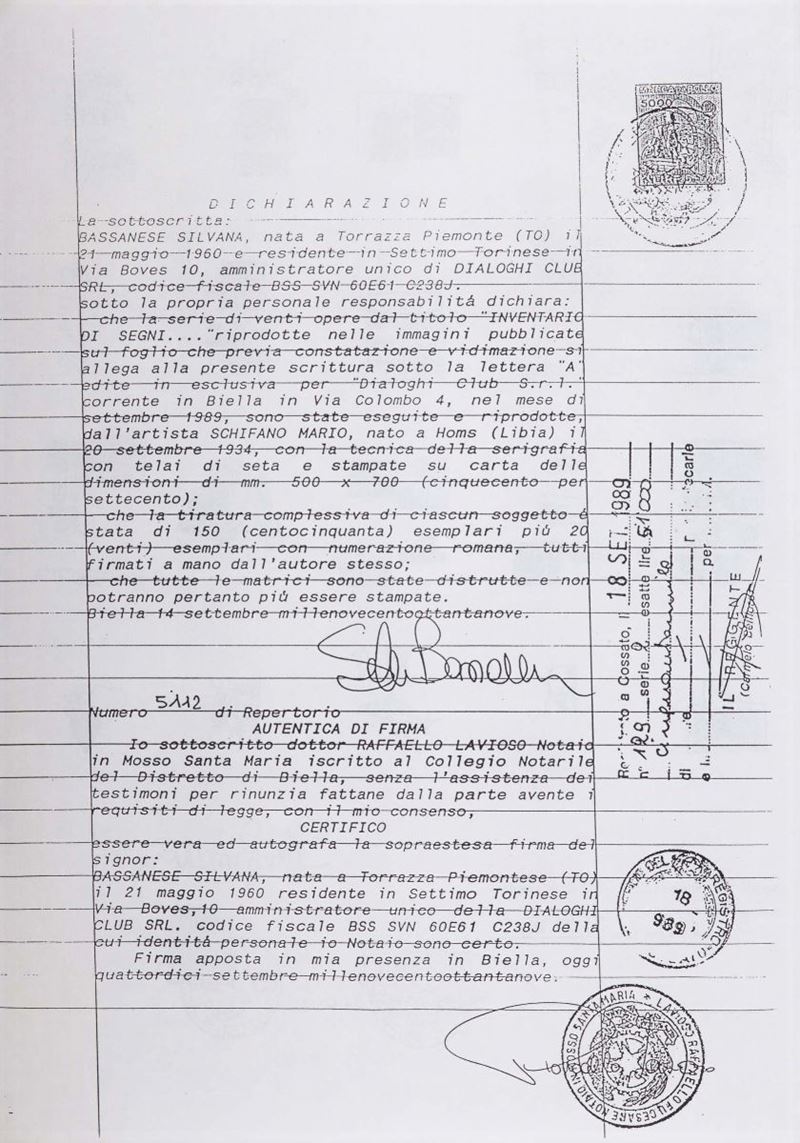 MARCA DA BOLLO
5000
DICHIARAZIONE
La sottoscritta:
BASSANESE SILVANA, nata a Torrazza Piemonte (TO) il
21 maggio 1960 e residente in Settimo Torinese in
Via Boves 10, amministratore unico di DIALOGHI CLUB
SRL, codice fiscale BSS SVN 60E61 C238J.
sotto la propria personale responsabilitá dichiara:
che la serie di venti opere dal titolo "INVENTARIO
DI SEGNI...."riprodotte nelle immagini pubblicate
sul foglio che previa constatazione e vidimazione si
allega alla presente scrittura sotto la lettera "A"
edite in esclusiva per "Dialoghi Club S.r.l."
corrente in Biella in Via Colombo 4, nel mese di
settembre 1989, sono state eseguite e riprodotte,
dall'artista SCHIFANO MARIO, nato a Homs (Libia) il
20 settembre 1934, con la tecnica della serigrafia
con telai di seta e stampate su carta delle
dimensioni di mm. 500 x 700 (cinquecento per
settecento);
che la tiratura complessiva di ciascun soggetto é
stata di 150 (centocinquanta) esemplari piú 20
(venti) esemplari con numerazione romana, tutti
firmati a mano dall'autore stesso;
che tutte le matrici sono state distrutte e non
potranno pertanto piú essere stampate.
Biella 14 settembre millenovecentoottantanove.
Numero 5112 di Repertorio
AUTENTICA DI FIRMA
Io sottoscritto dottor RAFFAELLO LAVIOSO Notaio
in Mosso Santa Maria iscritto al Collegio Notarile
del Distretto di Biella, senza l'assistenza dei
testimoni per rinunzia fattane dalla parte avente i
requisiti di legge, con il mio consenso,
CERTIFICO
essere vera ed autografa la sopraestesa firma del
signor:
BASSANESE SILVANA, nata a Torrazza Piemontese (TO)
il 21 maggio 1960 residente in Settimo Torinese in
Via Boves,10 amministratore unico della DIALOGHI
CLUB SRL. codice fiscale BSS SVN 60E61 C238J della
cui identitá personale io Notaio sono certo.
Firma apposta in mia presenza in Biella, oggi
quattordici settembre millenovecentoottantanove.
a Cossato, il 18 SET. 1989
n° 129 serie 2 esatte lire 51000
di
e per
IL REGGENTE
DEL REGISTRO
18
989
LAVIOSO RAFFAELLO FU CESARE NOTAIO IN MOSSO SANTA MARIA